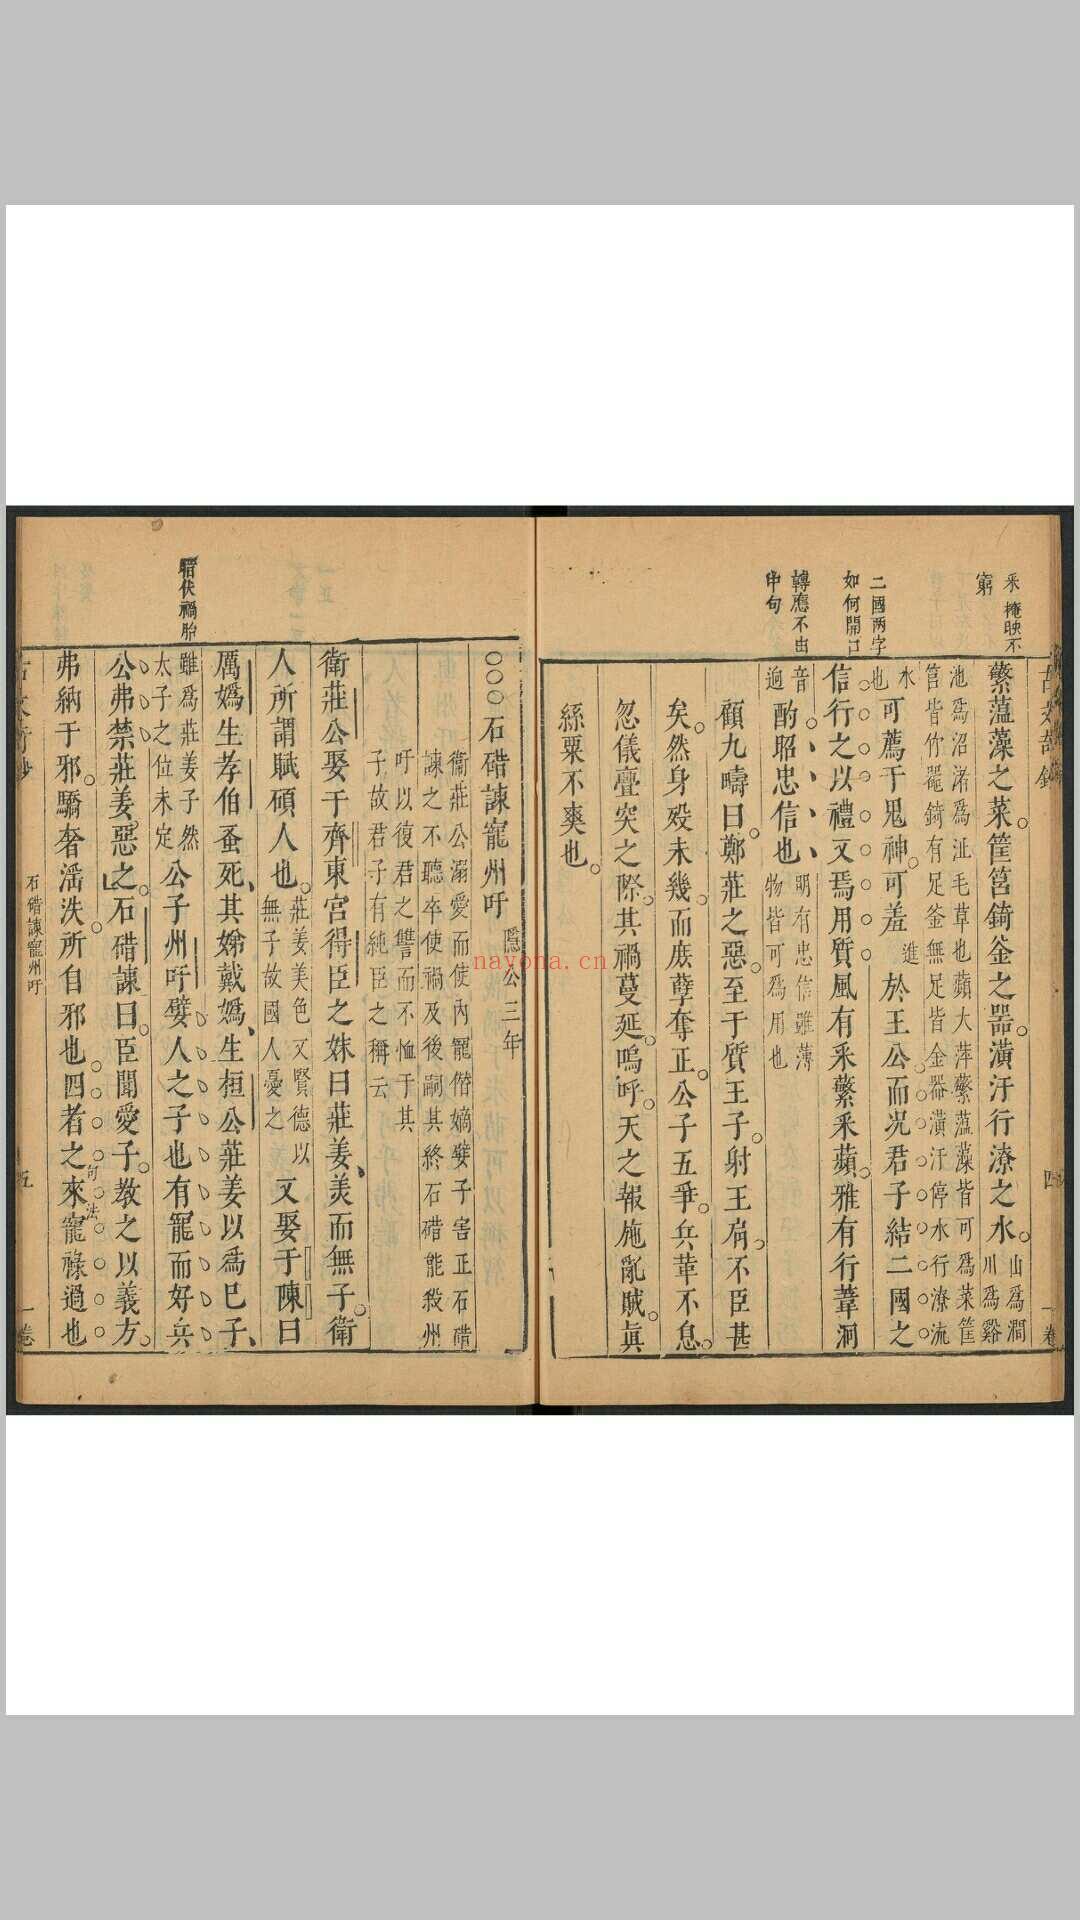 采 掩映不
窮
二國两字
如何開口
轉應不出
申句
蘩薀藻之菜。筐筥錡釜之器。潢汙行潦之水。山爲澗
川爲谿
池爲沼渚爲沚毛草也蘋大萍蘩薀藻皆可爲菜筐
筥皆竹器錡有足釜無足皆金器潢汙停水行潦流
水
也
可薦于鬼神。可羞
進
於王公。而况君子結二國之
信。行之以禮。又焉用質。風有采蘩采蘋。雅有行葦泂
音
迥
酌。昭忠信也
明有忠信雖薄
物皆可爲用也
顧九疇曰。鄭莊之惡。至于質王子。射王肩。不臣甚
矣。然身殁未幾。而庶孽奪正。公子五爭。兵革不息。
忽儀亹突之際。其禍蔓延。嗚呼。天之報施亂賊。眞
絲粟不爽也。
四
一卷
○○○石碏諫寵州吁
隱公三年
衞莊公溺愛而使內寵偝嫡嬖子害正石碏
諫之不聽卒使禍及後嗣其終石碏能殺州
吁以復君之讐而不恤于其
子故君子有純臣之稱云
衛莊公娶于齊東宮得臣之妹曰莊姜。美而無子。衛
人所謂賦碩人也。
莊姜美色又賢德以
無子故國人憂之
又娶于陳曰
厲嬀。生孝伯蚤死。其娣戴嬀。生桓公莊姜以爲己子。
雖爲莊姜子然
太子之位未定
公子州吁。嬖人之子也有寵而好兵
公弗禁莊姜惡之。石碏諫曰。臣聞愛子。教之以義方。
弗納于邪。驕奢滛泆。所自邪也。四者之來寵祿過也
句法
暗伏禍胎
石碏諫寵州吁
五
一卷
nayona.cn